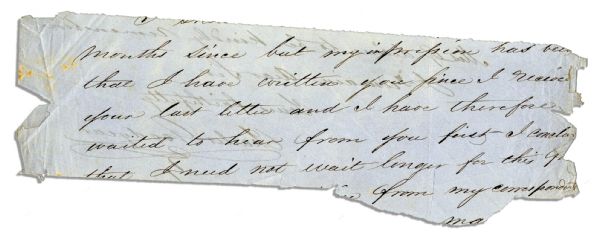 months since but my impression has been
that I have written you since I receive
your last letter and I have therefore
waited to hear from you first I
that I need not wait longer for this
from my correspond
ma